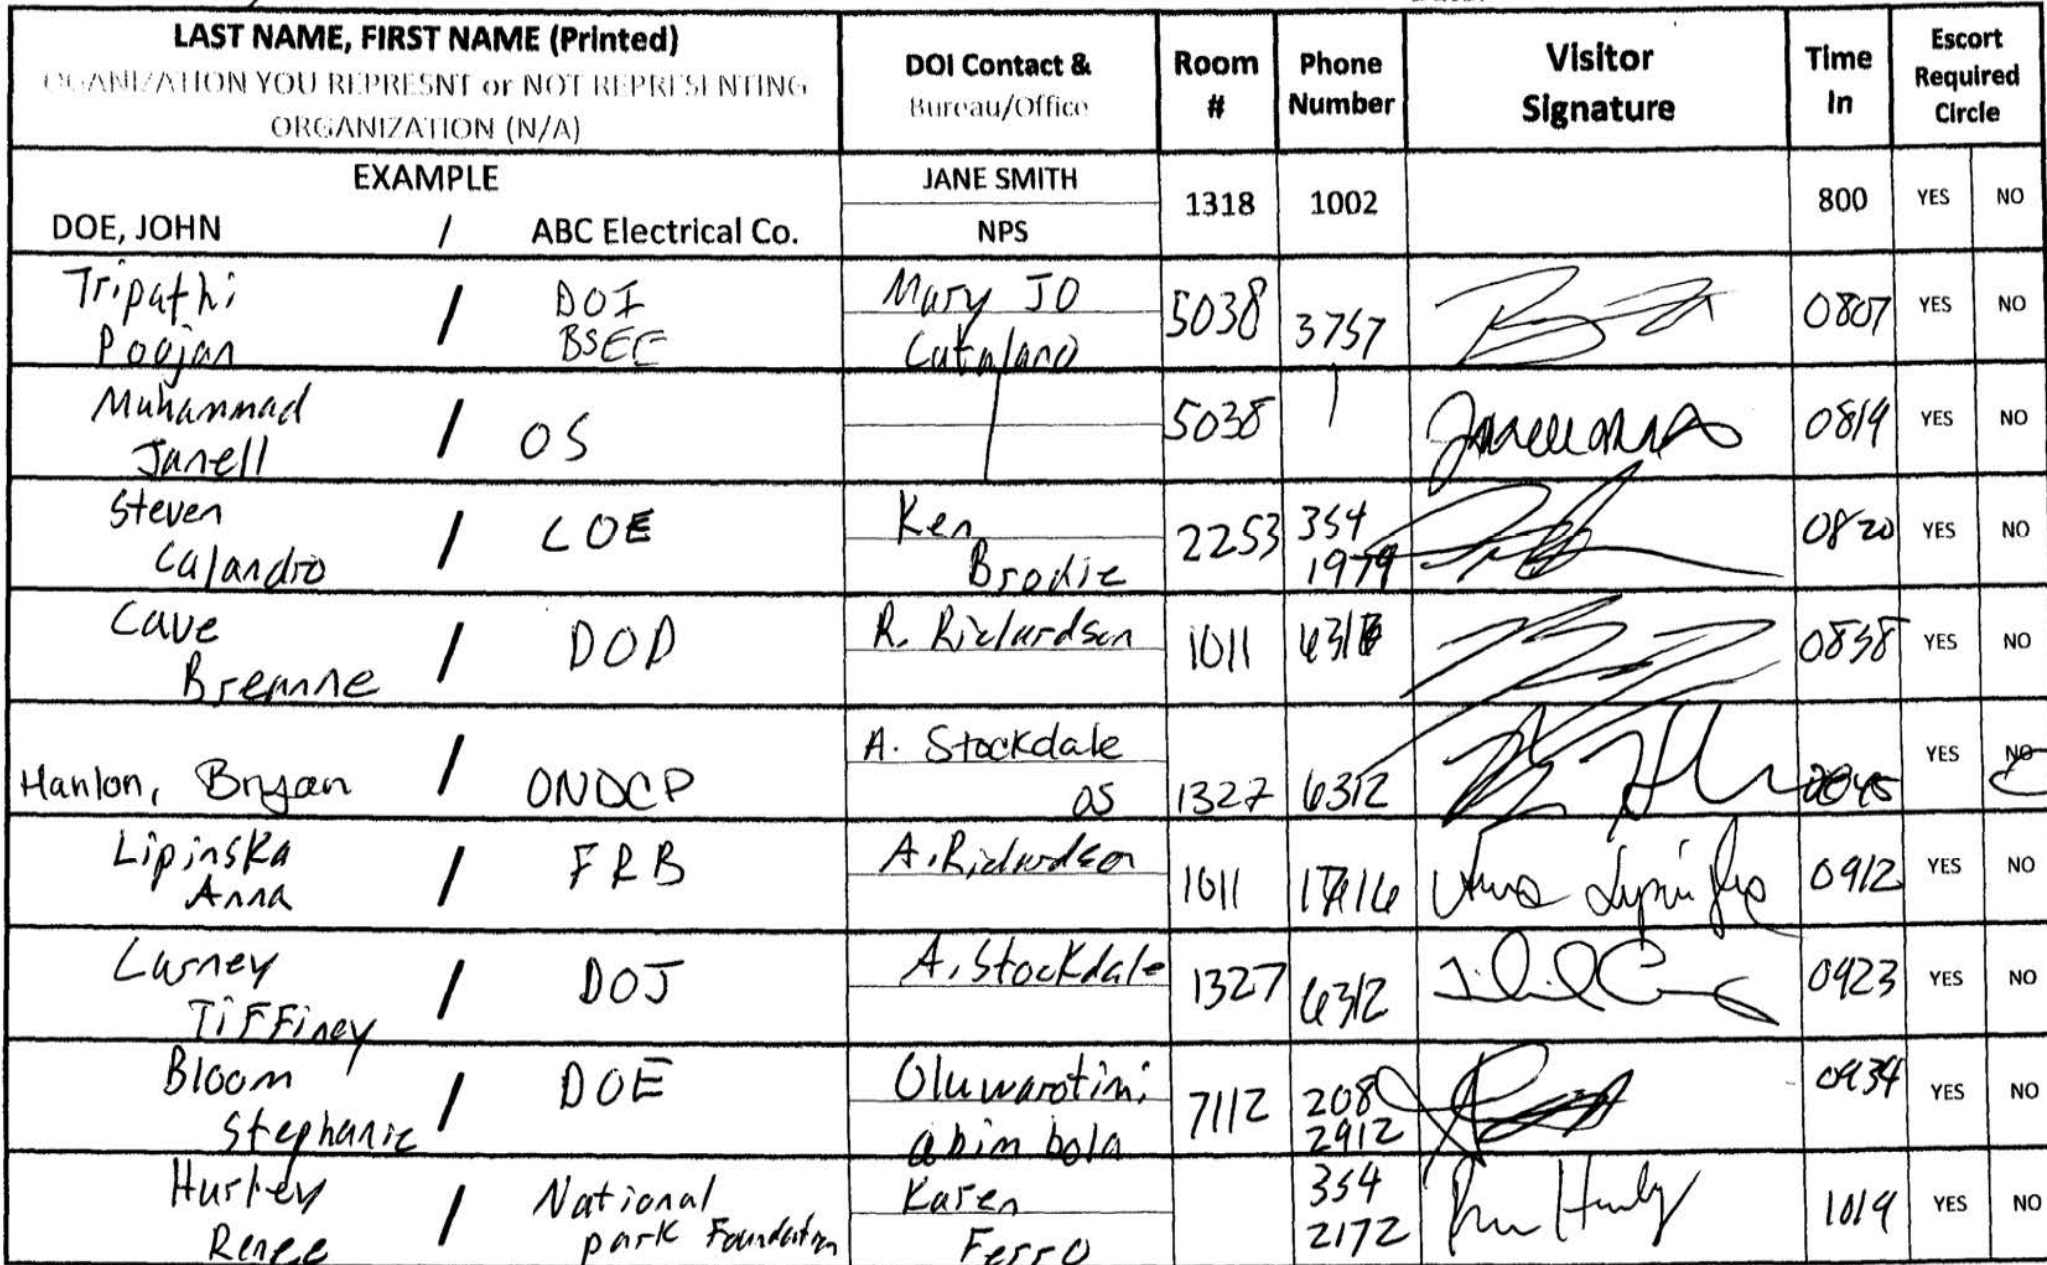 LAST NAME, FIRST NAME (Printed)
OGANIZATION YOU REPRESNT or NOT REPRESENTING
ORGANIZATION (N/A)
DOI Contact &
Bureau/Office
Room
#
Phone
Number
Visitor
Signature
Time
In
Escort
Required
Circle
EXAMPLE
DOE, JOHN / ABC Electrical Co.
JANE SMITH
NPS
1318 1002 800 YES NO
Tripathi
Poojan
/
DOI
BSEE
Mary JO
Catalano
5038 3757 0807 YES NO
Muhammad
Janell
/ OS
5038 0819 YES NO
Steven
Calandro
/ COE
Ken
Brodie
2253
354
1979
0820 YES NO
Cave
Breanne
/ DOD
R. Richardson
1011 0838 YES NO
Hanlon, Bryan / ONDCP
A. Stockdale
OS
1327 6312 0845 YES NO
Lipinska
Anna
/ FRB
A. Richardson
1011 Anna Lipinska 0912 YES NO
Carney
Tiffiney
/ DOJ
A. Stockdale
1327 6312 0923 YES NO
Bloom
Stephanie
/ DOE
Oluwarotimi
abimbola
7112
208
2912
0934 YES NO
Hurley
Renee
/
National
park Foundation
Karen
Ferro
354
2172
1019 YES NO